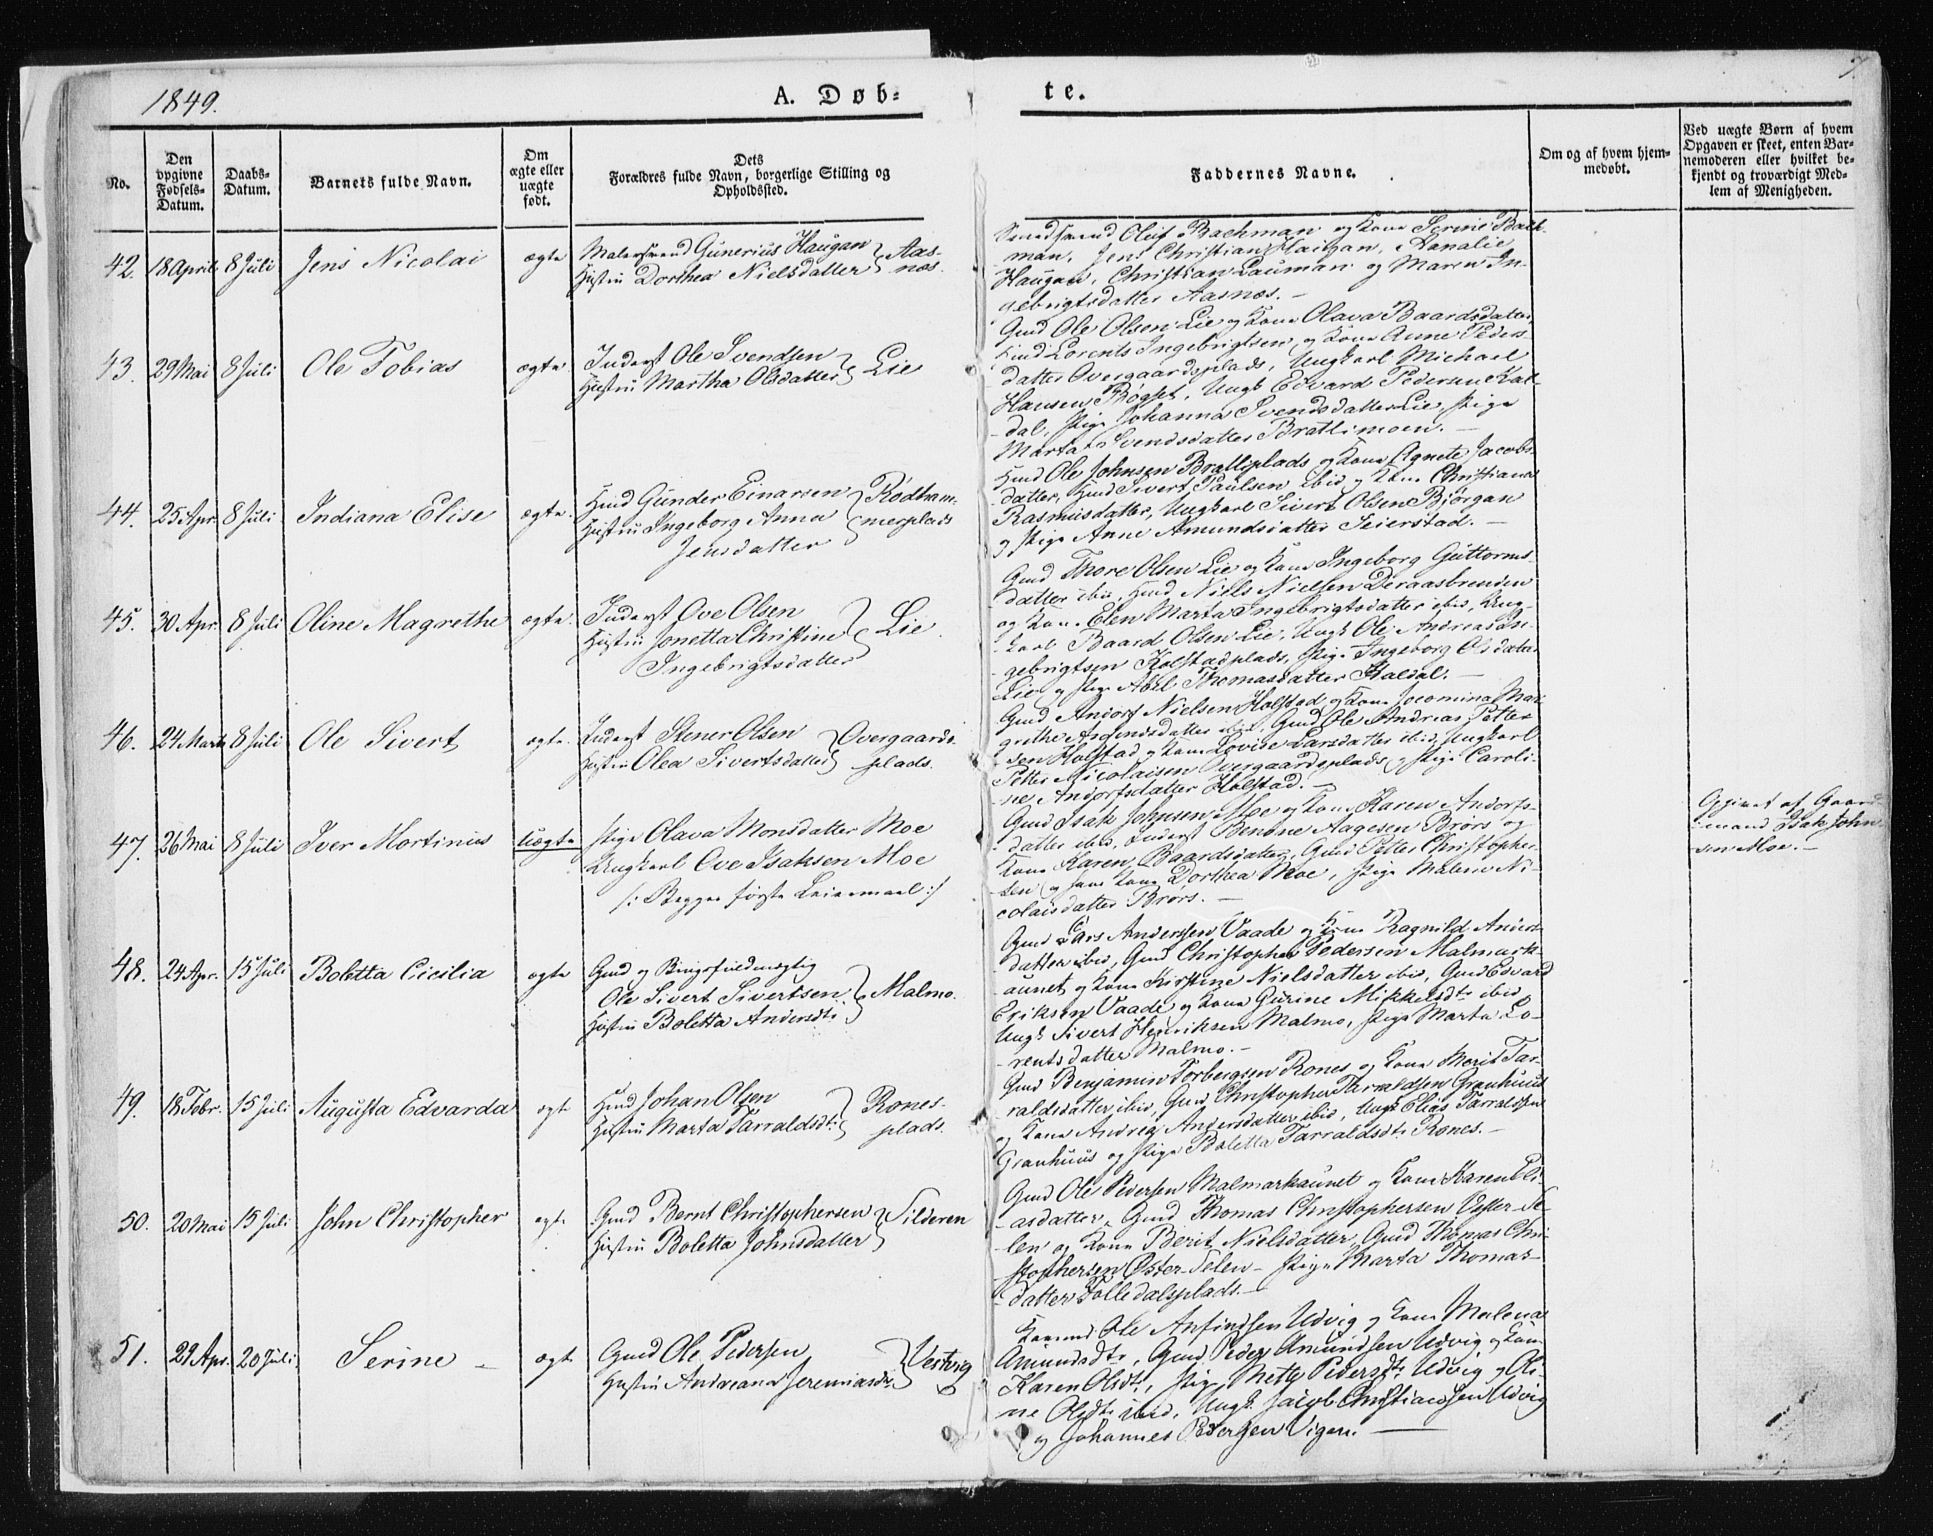 1849.
A. Døb-
te.
7.
No.
Den
opgivne
Fødsels-
Datum.
Daabs-
Datum.
Barnets fulde Navn.
Om
ægte eller
uægte
født.
Dets
Forældres fulde Navn, borgerlige Stilling og
Opholdssted.
Faddernes Navne.
Om og af hvem hjem-
medøbt.
Ved uægte Børn af hvem
Opgaven er skeet, enten Bar-
nemoderen eller hvilket be-
kjendt og troværdigt Med-
lem af Menigheden.
42. 18 April 8 Juli Jens Nicolai ægte
Malersvend Gunerius Haugan
Hustru Dorthea Nielsdatter
Aas-
næs.
Oluf Bachman og Kone Serine Bach-
man, Jens Christian Haugan,
Haugan, Christian Lauman og Maren In-
gebrigtsdatter Aasnæs.
43. 29 Mai 8 Juli Ole Tobias ægte
Inderst Ole Svendsen
Hustru Martha Olsdatter
Lie
Gmd Ole Olsen Lie og Kone Olava Baardsdatter
Hmd Lorents Ingebrigtsen og Kone Anne Peders-
datter Overgaardsplads, Ungkarl Michael
Hansen Røgset, Ungk Edvard Pedersen Kal-
dal, Pige Johanna Svendsdatter Lie, Pige
Marta Svendsdatter Brattimoen.
44. 25 Apr. 8 Juli Indiana Elise ægte
Hmd Gunder Einarsen
Hustru Ingeborg Anna
Jensdatter
Rødham-
merplads
Hmd Ole Johnsen Bratliplads og Kone Agnete Jacobs-
datter, Hmd Sivert Paulsen ibid og Kone Christiana
Rasmusdatter, Ungkarl Sivert Olsen Bjørgan
og Pige Anne Amundsdatter Seierstad.
45. 30 Apr. 8 Juli Oline Magrethe ægte
Inderst Ove Olsen
Hustru Jonetta Christine
Ingebrigtsdatter
Lie.
Gmd Thore Olsen Lie og Kone Ingeborg Guttorms-
datter ibid, Hmd Niels Nielsen Deraasbrenden
og Kone Elen Marta Ingebrigtsdatter ibid, Ung-
karl Baard Olsen Lie, Ungk Ole Andreas In-
gebrigtsen Kolstadplads, Pige Ingeborg Olsdatter
Lie og Pige Abel Thomasdatter Haldal.
46. 24 Marts 8 Juli Ole Sivert ægte
Inderst Stener Olsen
Hustru Olea Sivertsdatter
Overgaards-
plads.
Gmd Andorf Nielsen Holstad og Kone Jocomina Mar-
grethe datter ibid, Gmd Ole Andreas Petter-
sen Holstad og Kone Lovise Larsdatter ibid, Ungkarl
Petter Nicolaisen Overgaardsplads og Pige Caroli-
ne Andorfsdatter Holstad.
47. 26 Mai 8 Juli Iver Mortinus uægte
Pige Olava Monsdatter Moe
Ungkarl Ove Isaksen Moe
/: Begges første Leiermaal :/
Gmd Isak Johnsen Moe og Kone Karen Andorfs-
datter ibid, Inderst Benone Aagesen Brørs og
Kone Karen Baardsdatter, Gmd Petter Christopher-
sen og Kone Dorthea Moe, Pige Malene Ni-
colaisdatter Brørs.
Opgivet af Gaard-
mand Isak John-
sen Moe.
48. 24 Apr. 15 Juli Boletta Cicilia ægte
Gmd og Brugsfuldmægtig
Ole Sivert Sivertsen
Hustru Boletta Andersdt.
Malmo.
Gmd Lars Anderssen Vaade og Kone Ragnild Anders-
datter ibid, Gmd Christopher Pedersen Malmark-
aunet og Kone Kirstine Nielsdatter ibid, Gmd Edvard
Eriksen Vaade og Kone Gurine Mikkelsdt. ibid
Ungk Sivert Henriksen Malmo, Pige Marta Lo-
rentsdatter Malmo.
49. 18 Febr. 15 Juli Augusta Edvarda ægte
Hmd Johan Olsen
Hustru Marta Tarraldsdt.
Rones-
plads.
Gmd Benjamin Torbergsen Rones og Kone Marit Tar-
raldsdatter ibid, Gmd Christopher Tarraldsen Granhuus
og Kone Andrea Andersdatter ibid, Ungk Elias Tarraldsen
Granhuus og Pige Boletta Tarraldsdt. Rones.
50. 20 Mai 15 Juli John Christopher ægte
Gmd Bernt Christophersen
Hustru Boletta Johnsdatter
Silderen
Gmd Ole Pedersen Malmarkaunet og Kone Karen Eli-
asdatter, Gmd Thomas Christophersen Vester-Se-
len og Kone Berit Nielsdatter, Gmd Thomas Chri-
stophersen Øster-Selen, Pige Marta Thomas-
datter Folledalsplads.
51. 29 Apr. 20 Juli Serine ægte
Gmd Ole Pedersen
Hustru Andreana Jeremiasdt.
Vestvig
Ole Anfindsen Udvig og Kone Malena
Amundsdt., Gmd Peder Amundsen Udvig og Kone
Karen Olsdt., Pige Mette Pedersdt. Udvig og Oli-
ne Olsdt. ibid, Ungk. Jacob Christiansen Udvig
og Johannes Pedersen Vigen.